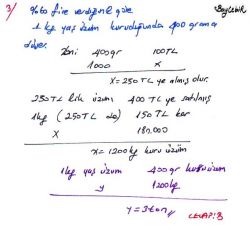 3/ %60 fire verdiğine göre Beylerik
1 kg yaş üzüm kuruduğunda 400 grama
düşer.
Yani 400gr 100TL
1000 x
x=250TL ye almış olur.
250TL lik üzüm 400 TL ye satılmış
1kg (250TL de) 150TL kar
x 180.000
x=1200kg kuru üzüm
1kg yaş üzüm 400gr kuru üzüm
y 1200kg
y=3ton//
CEVAP:B